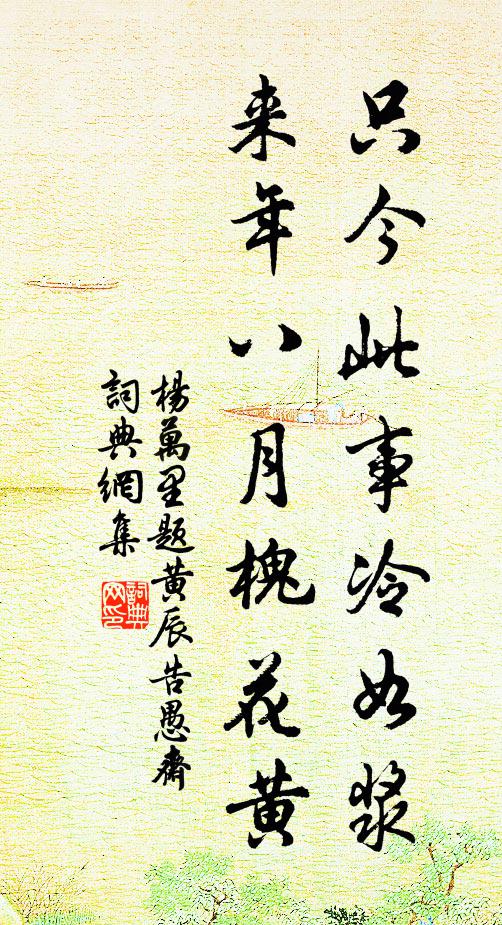 只今此事冷如漿
来年八月槐花黄
楊萬里題黄辰告愚齋
詞典網集
詞典网印